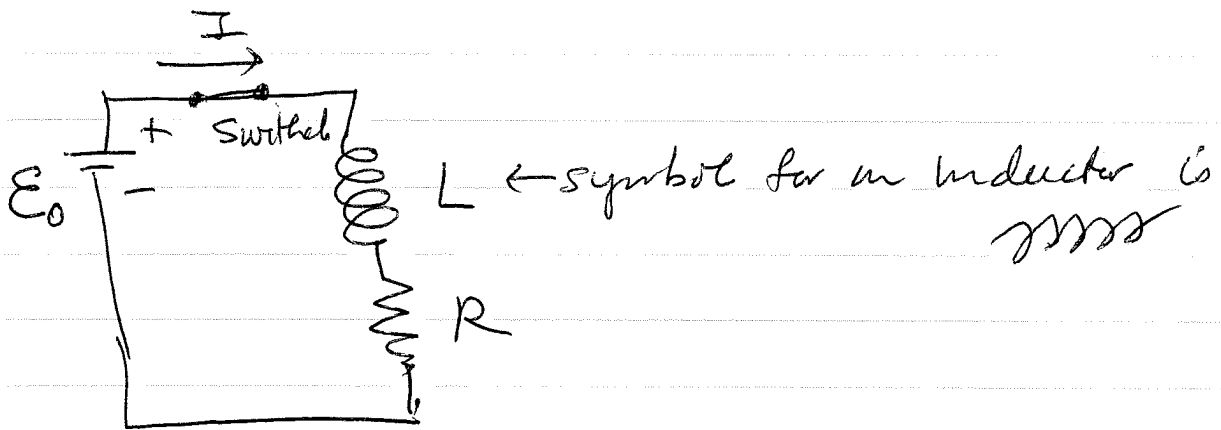 I
+ Switch
ℰ₀ -
L ← symbol for an inductor is
R